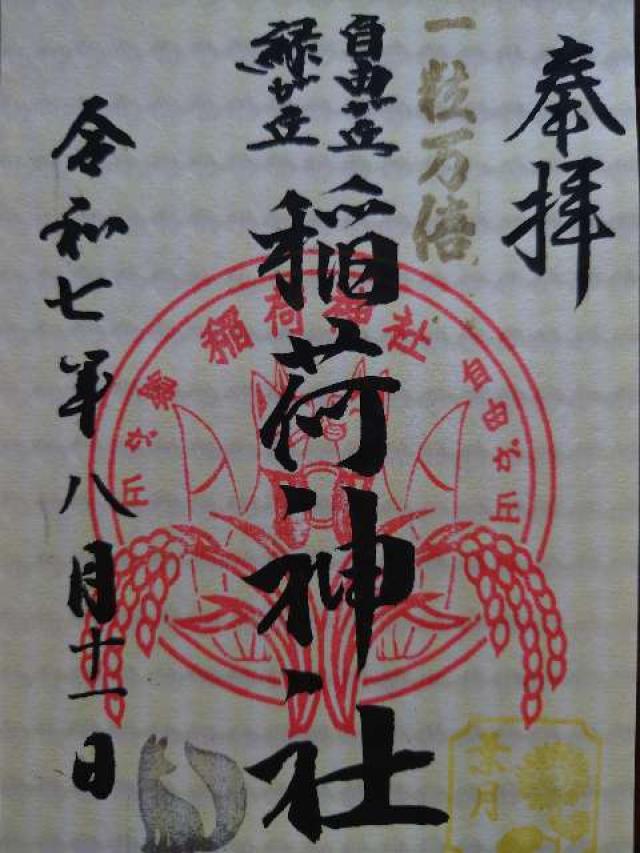 奉拝
一粒万倍
自由が丘
緑が丘
稲荷神社
令和七年八月十一日
稲荷神社
自由が丘
緑が丘
葉月